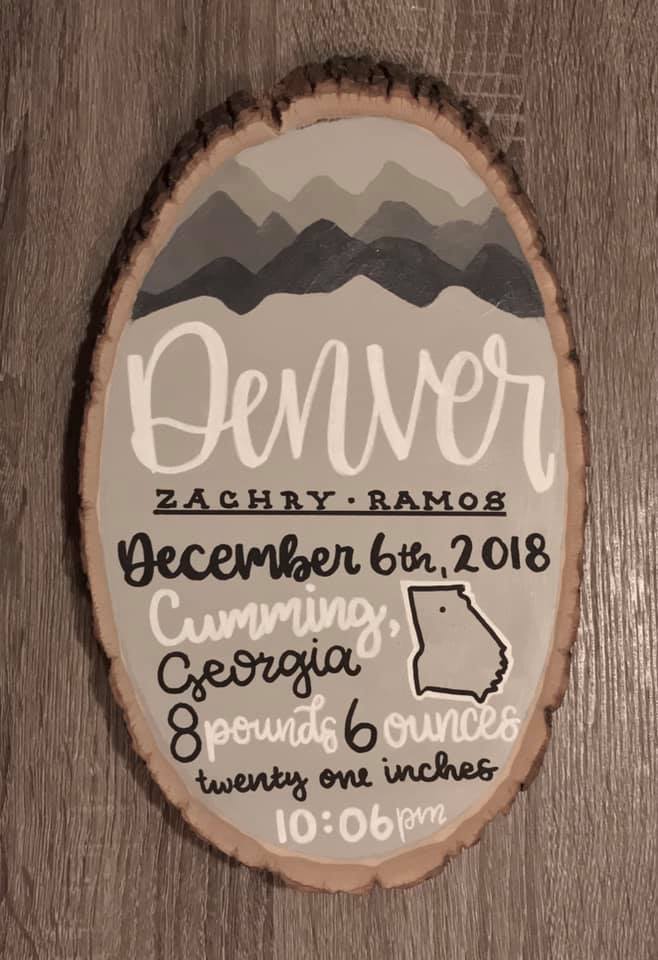 Denver
ZACHRY · RAMOS
December 6th, 2018
Cumming,
Georgia
8 pounds 6 ounces
twenty one inches
10:06 pm